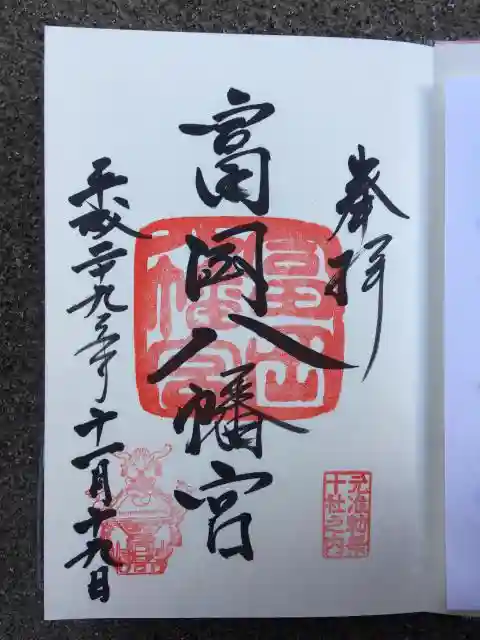 奉拝
富岡八幡宮
平成二十九年十一月十九日
富岡
八幡宮
元准勅祭
十社之内